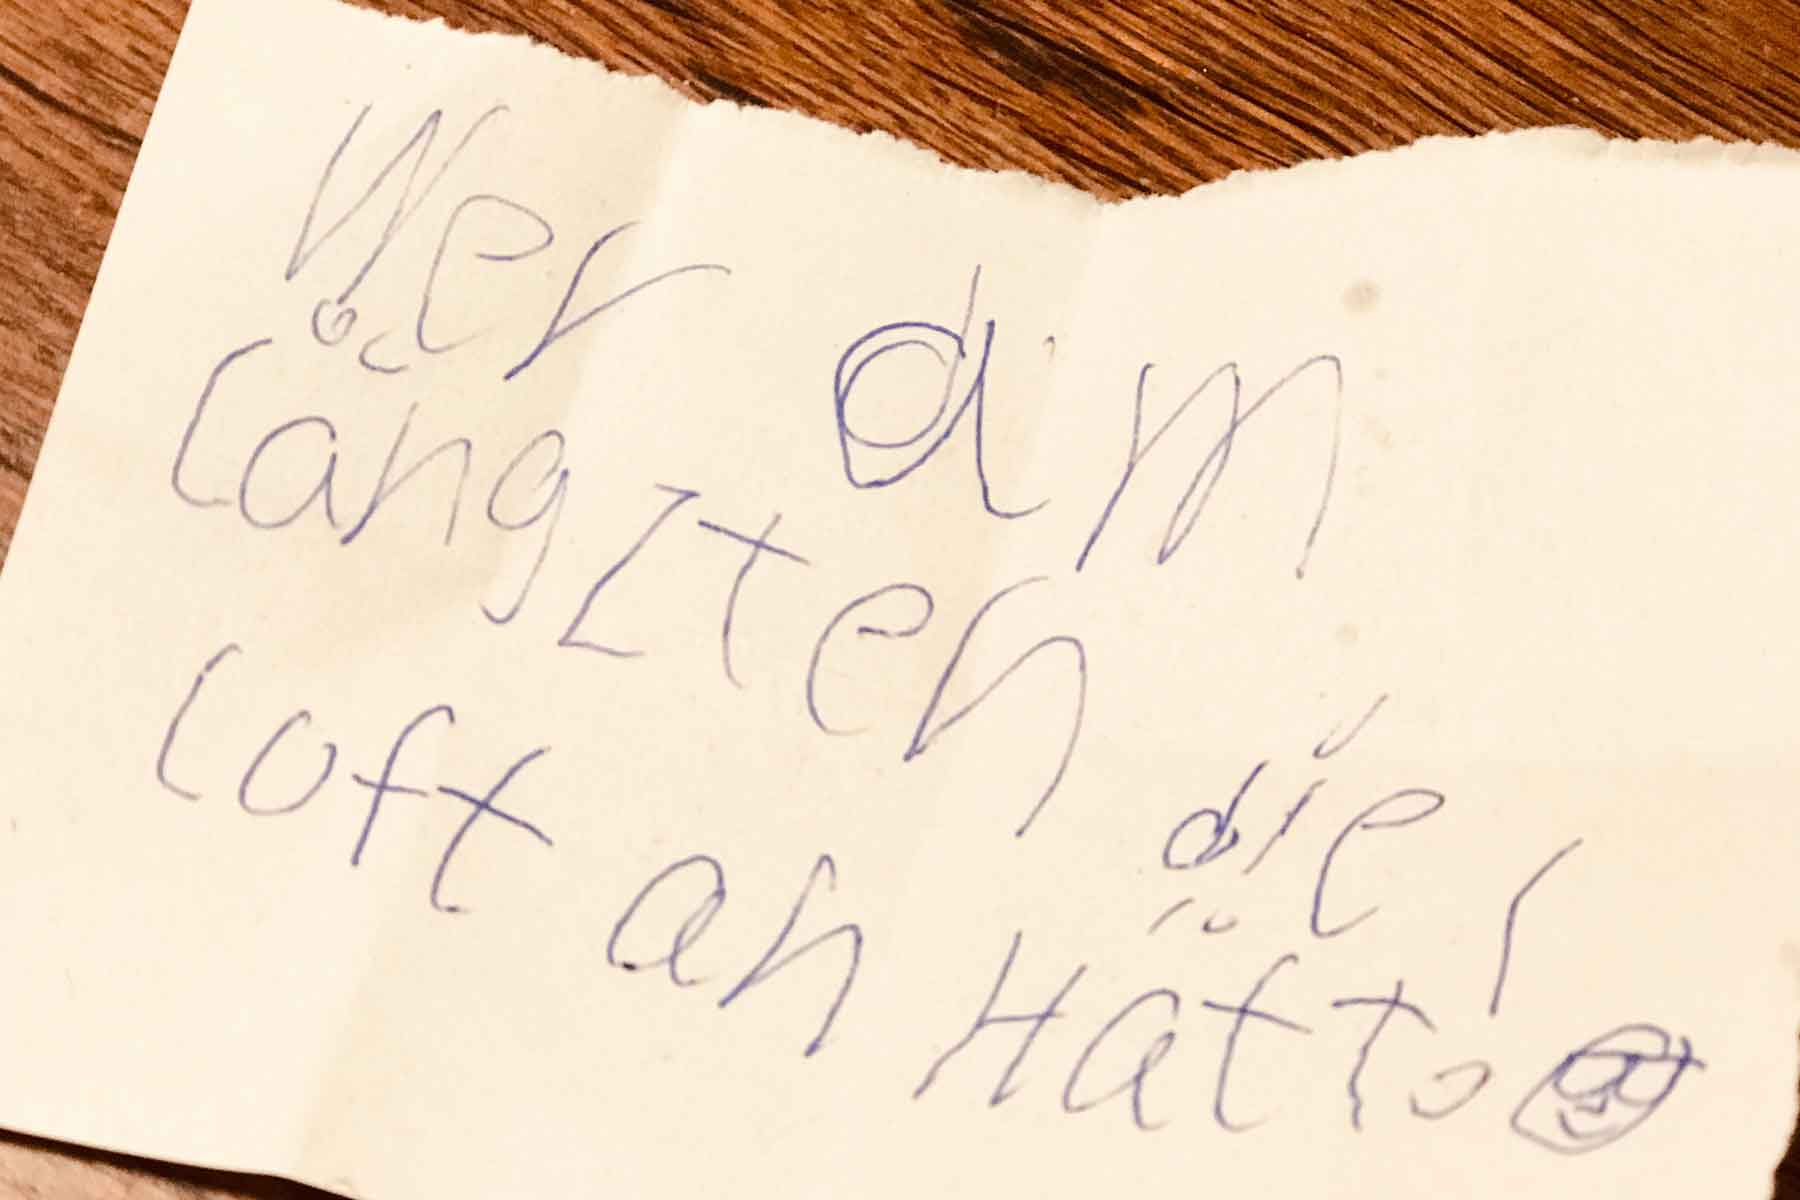 Wer am
längZten die
Loft an Hätt!